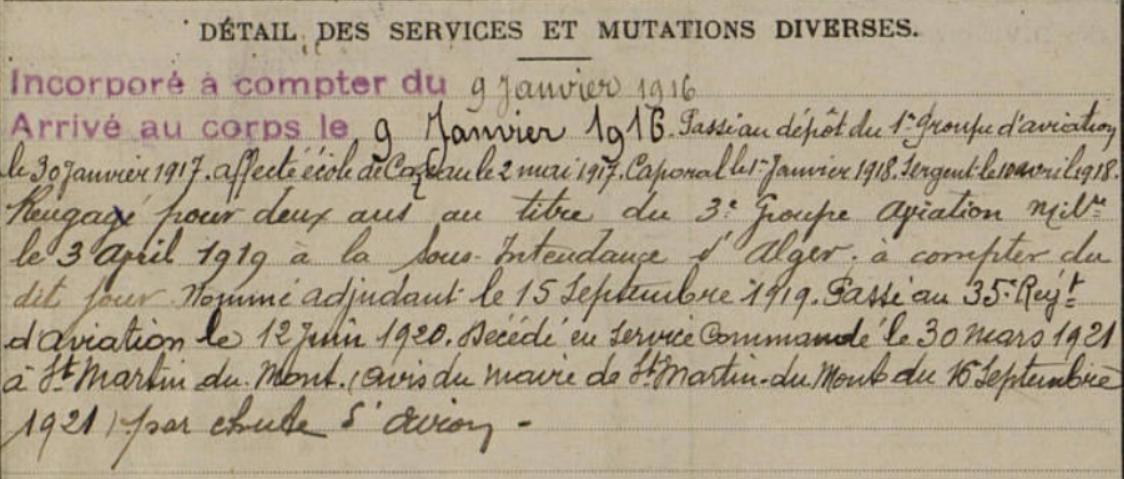 DÉTAIL DES SERVICES ET MUTATIONS DIVERSES.
Incorporé à compter du 9 Janvier 1916
Arrivé au corps le 9 Janvier 1916. Passé au dépôt du 1er Groupe d'aviation
le 30 Janvier 1917. affecté école de Cazeau le 2 mai 1917. Caporal le 1er Janvier 1918. Sergent le 10 avril 1918.
Rengagé pour deux ans au titre du 3e Groupe Aviation milre
le 3 April 1919 à la Sous-Intendance d'Alger. à compter du
dit jour. Nommé adjudant le 15 Septembre 1919. Passé au 35e Regt
d'aviation le 12 Juin 1920. Décédé en Service Commandé le 30 mars 1921
à St Martin du Mont. (avis du maire de St Martin-du Mont du 16 Septembre
1921) par chute d'avion -